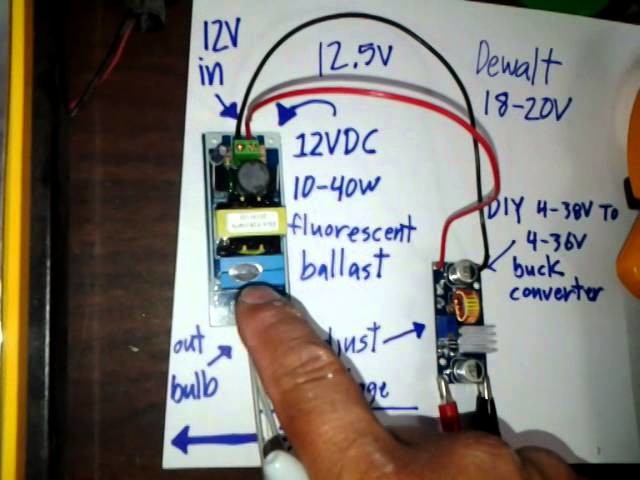 12V
in
12.5V
Dewalt
18-20V
12VDC
10-40W
fluorescent
ballast
DIY 4-38V To
4-36V
buck
converter
out
bulb